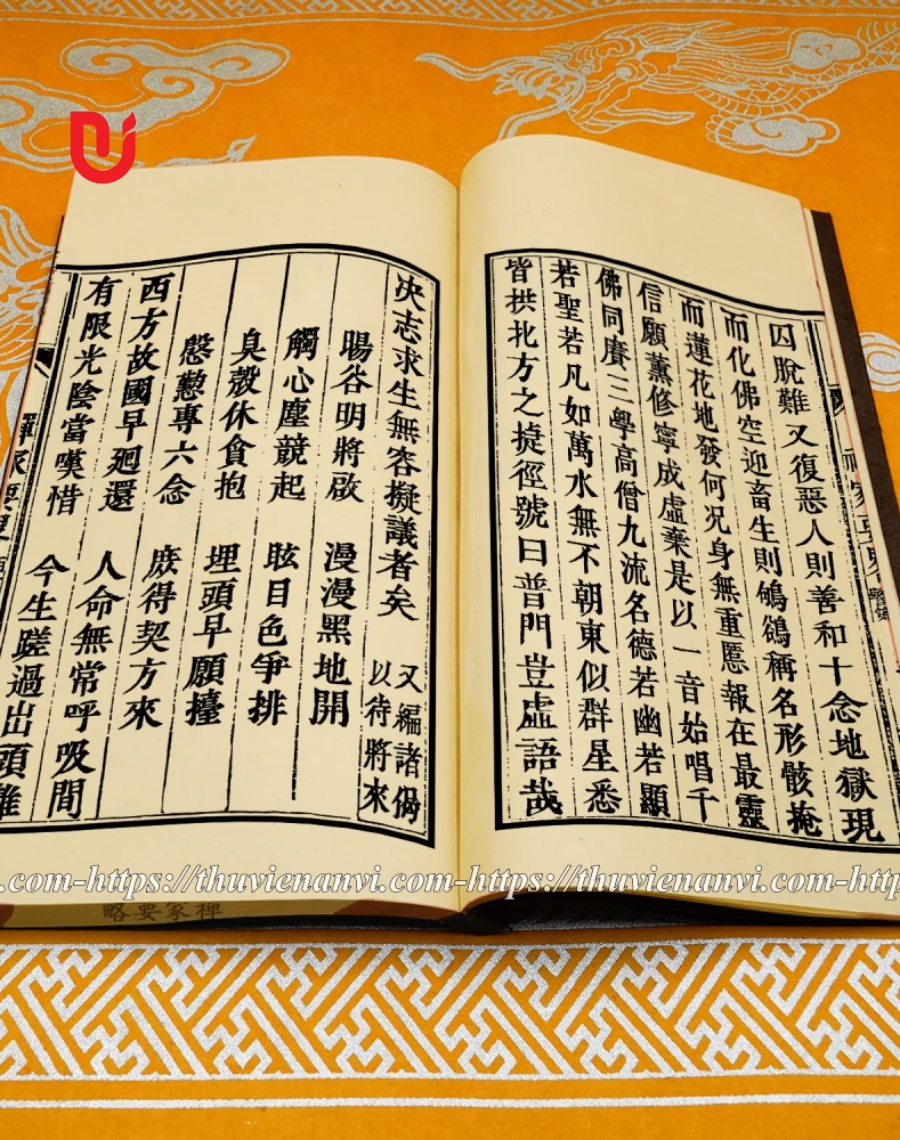 囚脫難又復惡人則善和十念地獄現
而化佛空迎畜生則鴝鵒稱名形骸掩
而蓮花地發何况身無重慝報在最靈
信願薫修寧成虛棄是以一音始唱千
佛同賡三學高僧九流名德若幽若顯
若聖若凡如萬水無不朝東似群星悉
皆拱北方之捷徑號曰普門豈虛語哉
决志求生無容擬議者矣 又編諸偈以待將來
暘谷明將啟 漫漫黑地開
觸心塵競起 眩目色爭排
臭殼休貪抱 埋頭早願擡
慇懃專六念 庻得契方來
西方故國早廻還 人命無常呼吸間
有限光陰當嘆惜 今生蹉過出頭難
略要家禪
.com-https://thuvienanvi.com-https://thuvienanvi.com-http